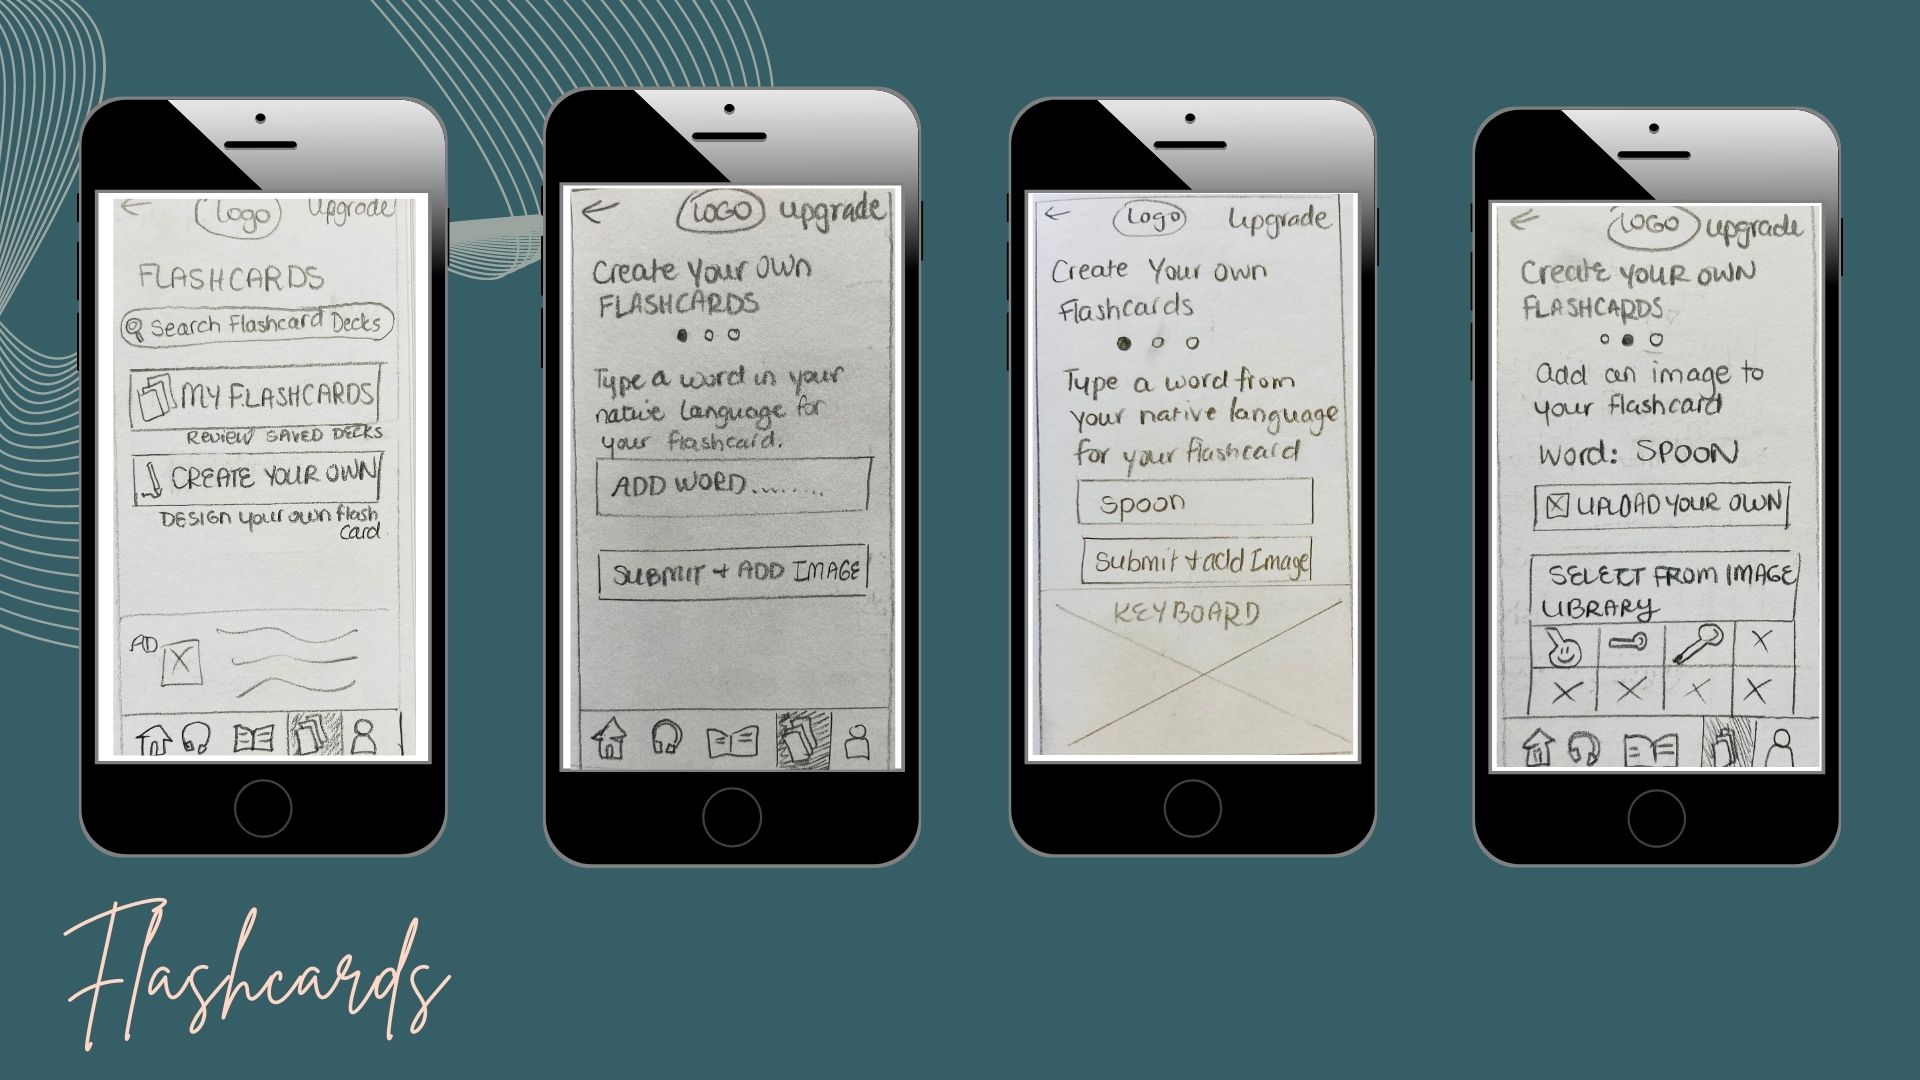 Logo
Upgrade
FLASHCARDS
Search Flashcard Decks
MY FLASHCARDS
REVIEW SAVED DECKS
CREATE YOUR OWN
DESIGN your own flash
card
AD
LOGO
upgrade
Create Your Own
FLASHCARDS
Type a word in your
native language for
your flashcard.
ADD WORD........
SUBMIT + ADD IMAGE
Logo
Upgrade
Create Your Own
Flashcards
Type a word from
your native language
for your flashcard
spoon
Submit + add Image
KEYBOARD
LOGO
upgrade
Create YOUR OWN
FLASHCARDS
add an image to
your flashcard
Word: SPOON
UPLOAD YOUR OWN
SELECT FROM IMAGE
LIBRARY
Flashcards